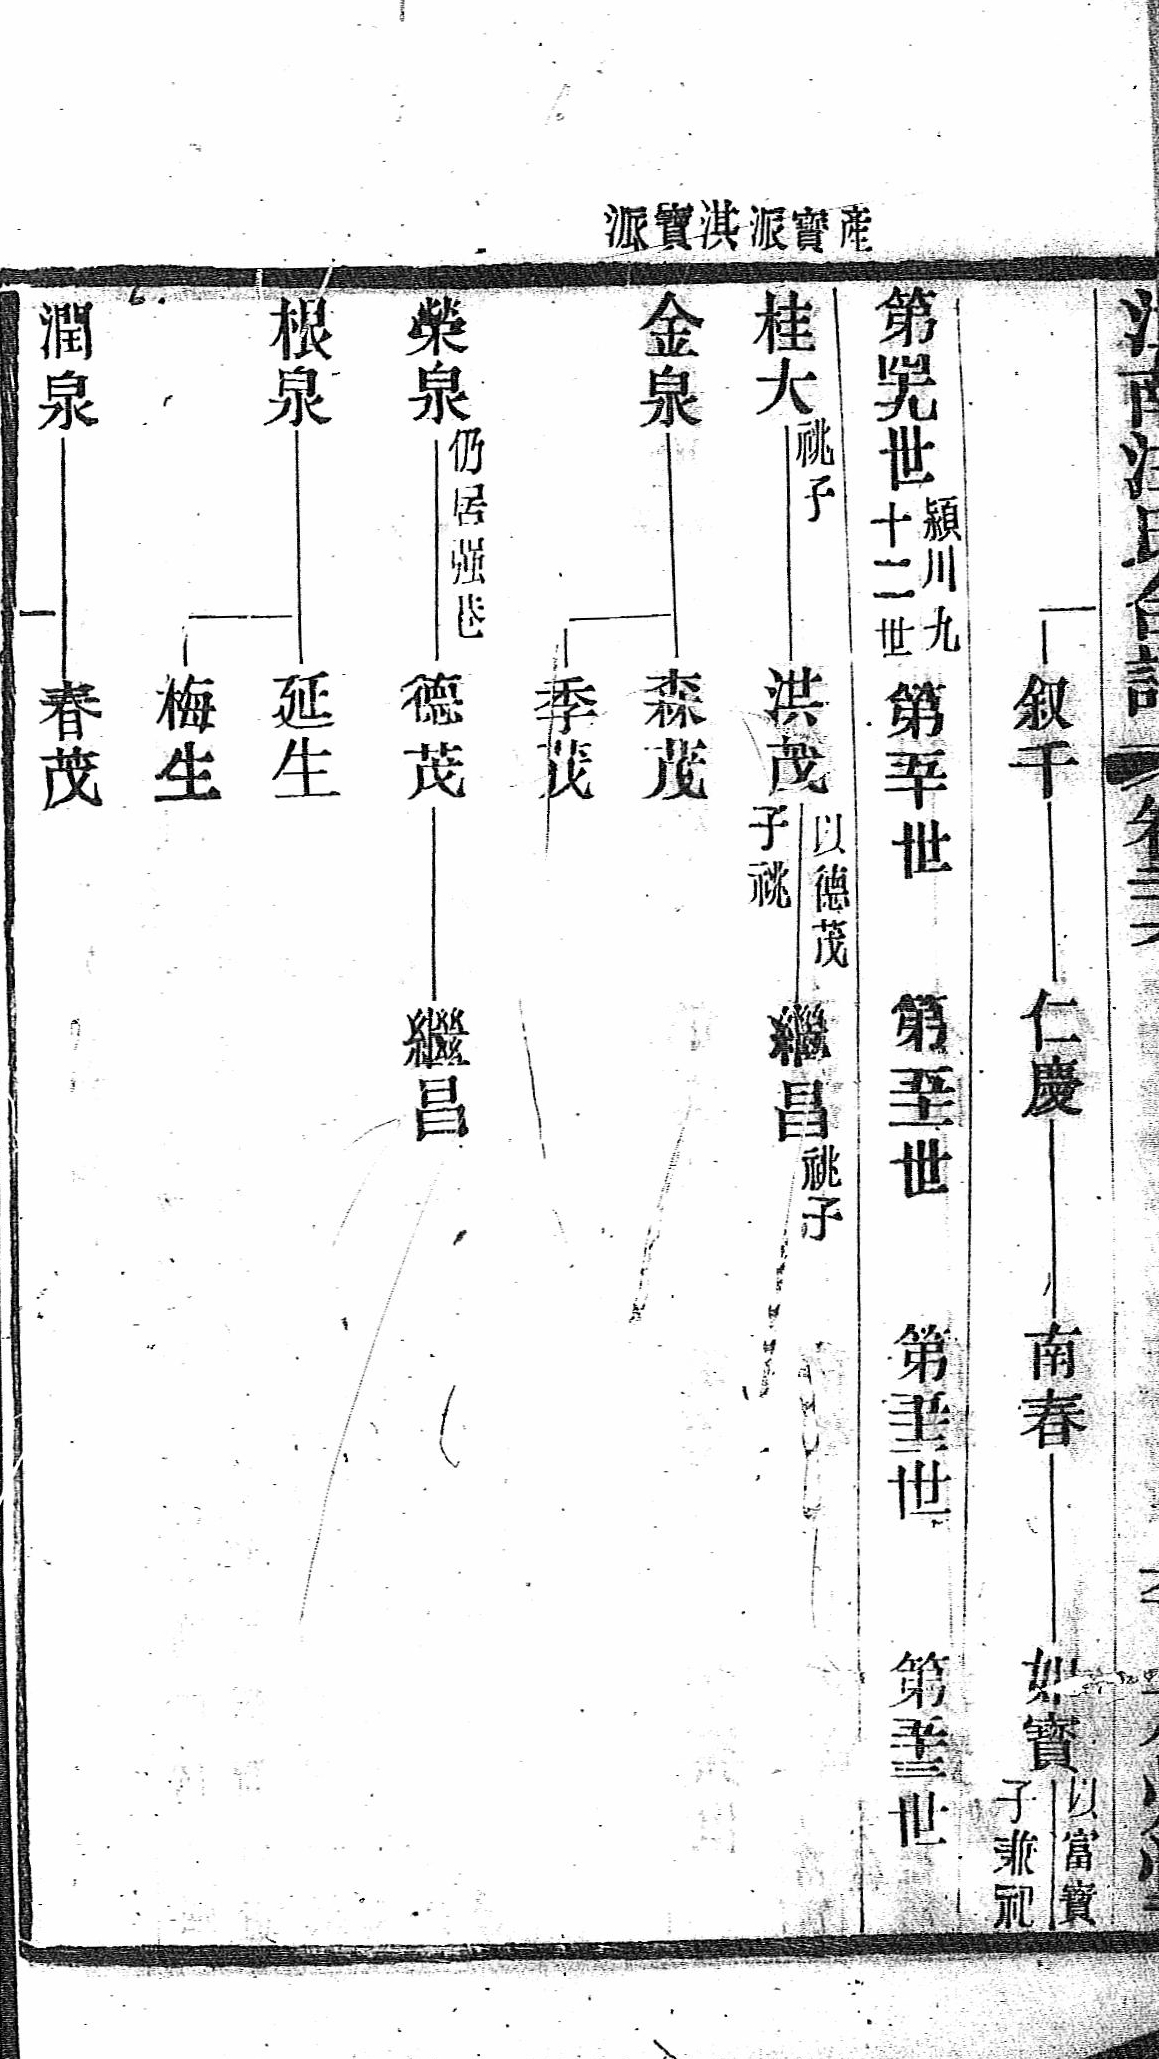 產寶派淇寶派
叙干
仁慶
南春
如寶
以富寶
子兼祀
第罤世
潁川九
十二世
第平世
第五十一世
第五十二世
第五十三世
桂大
祧子
洪茂
以德茂
子祧
繼昌
祧子
金泉
森茂
季茂
榮泉
仍居强巷
德茂
繼昌
根泉
延生
梅生
潤泉
春茂